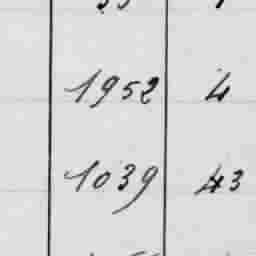 1952 4
1039 43